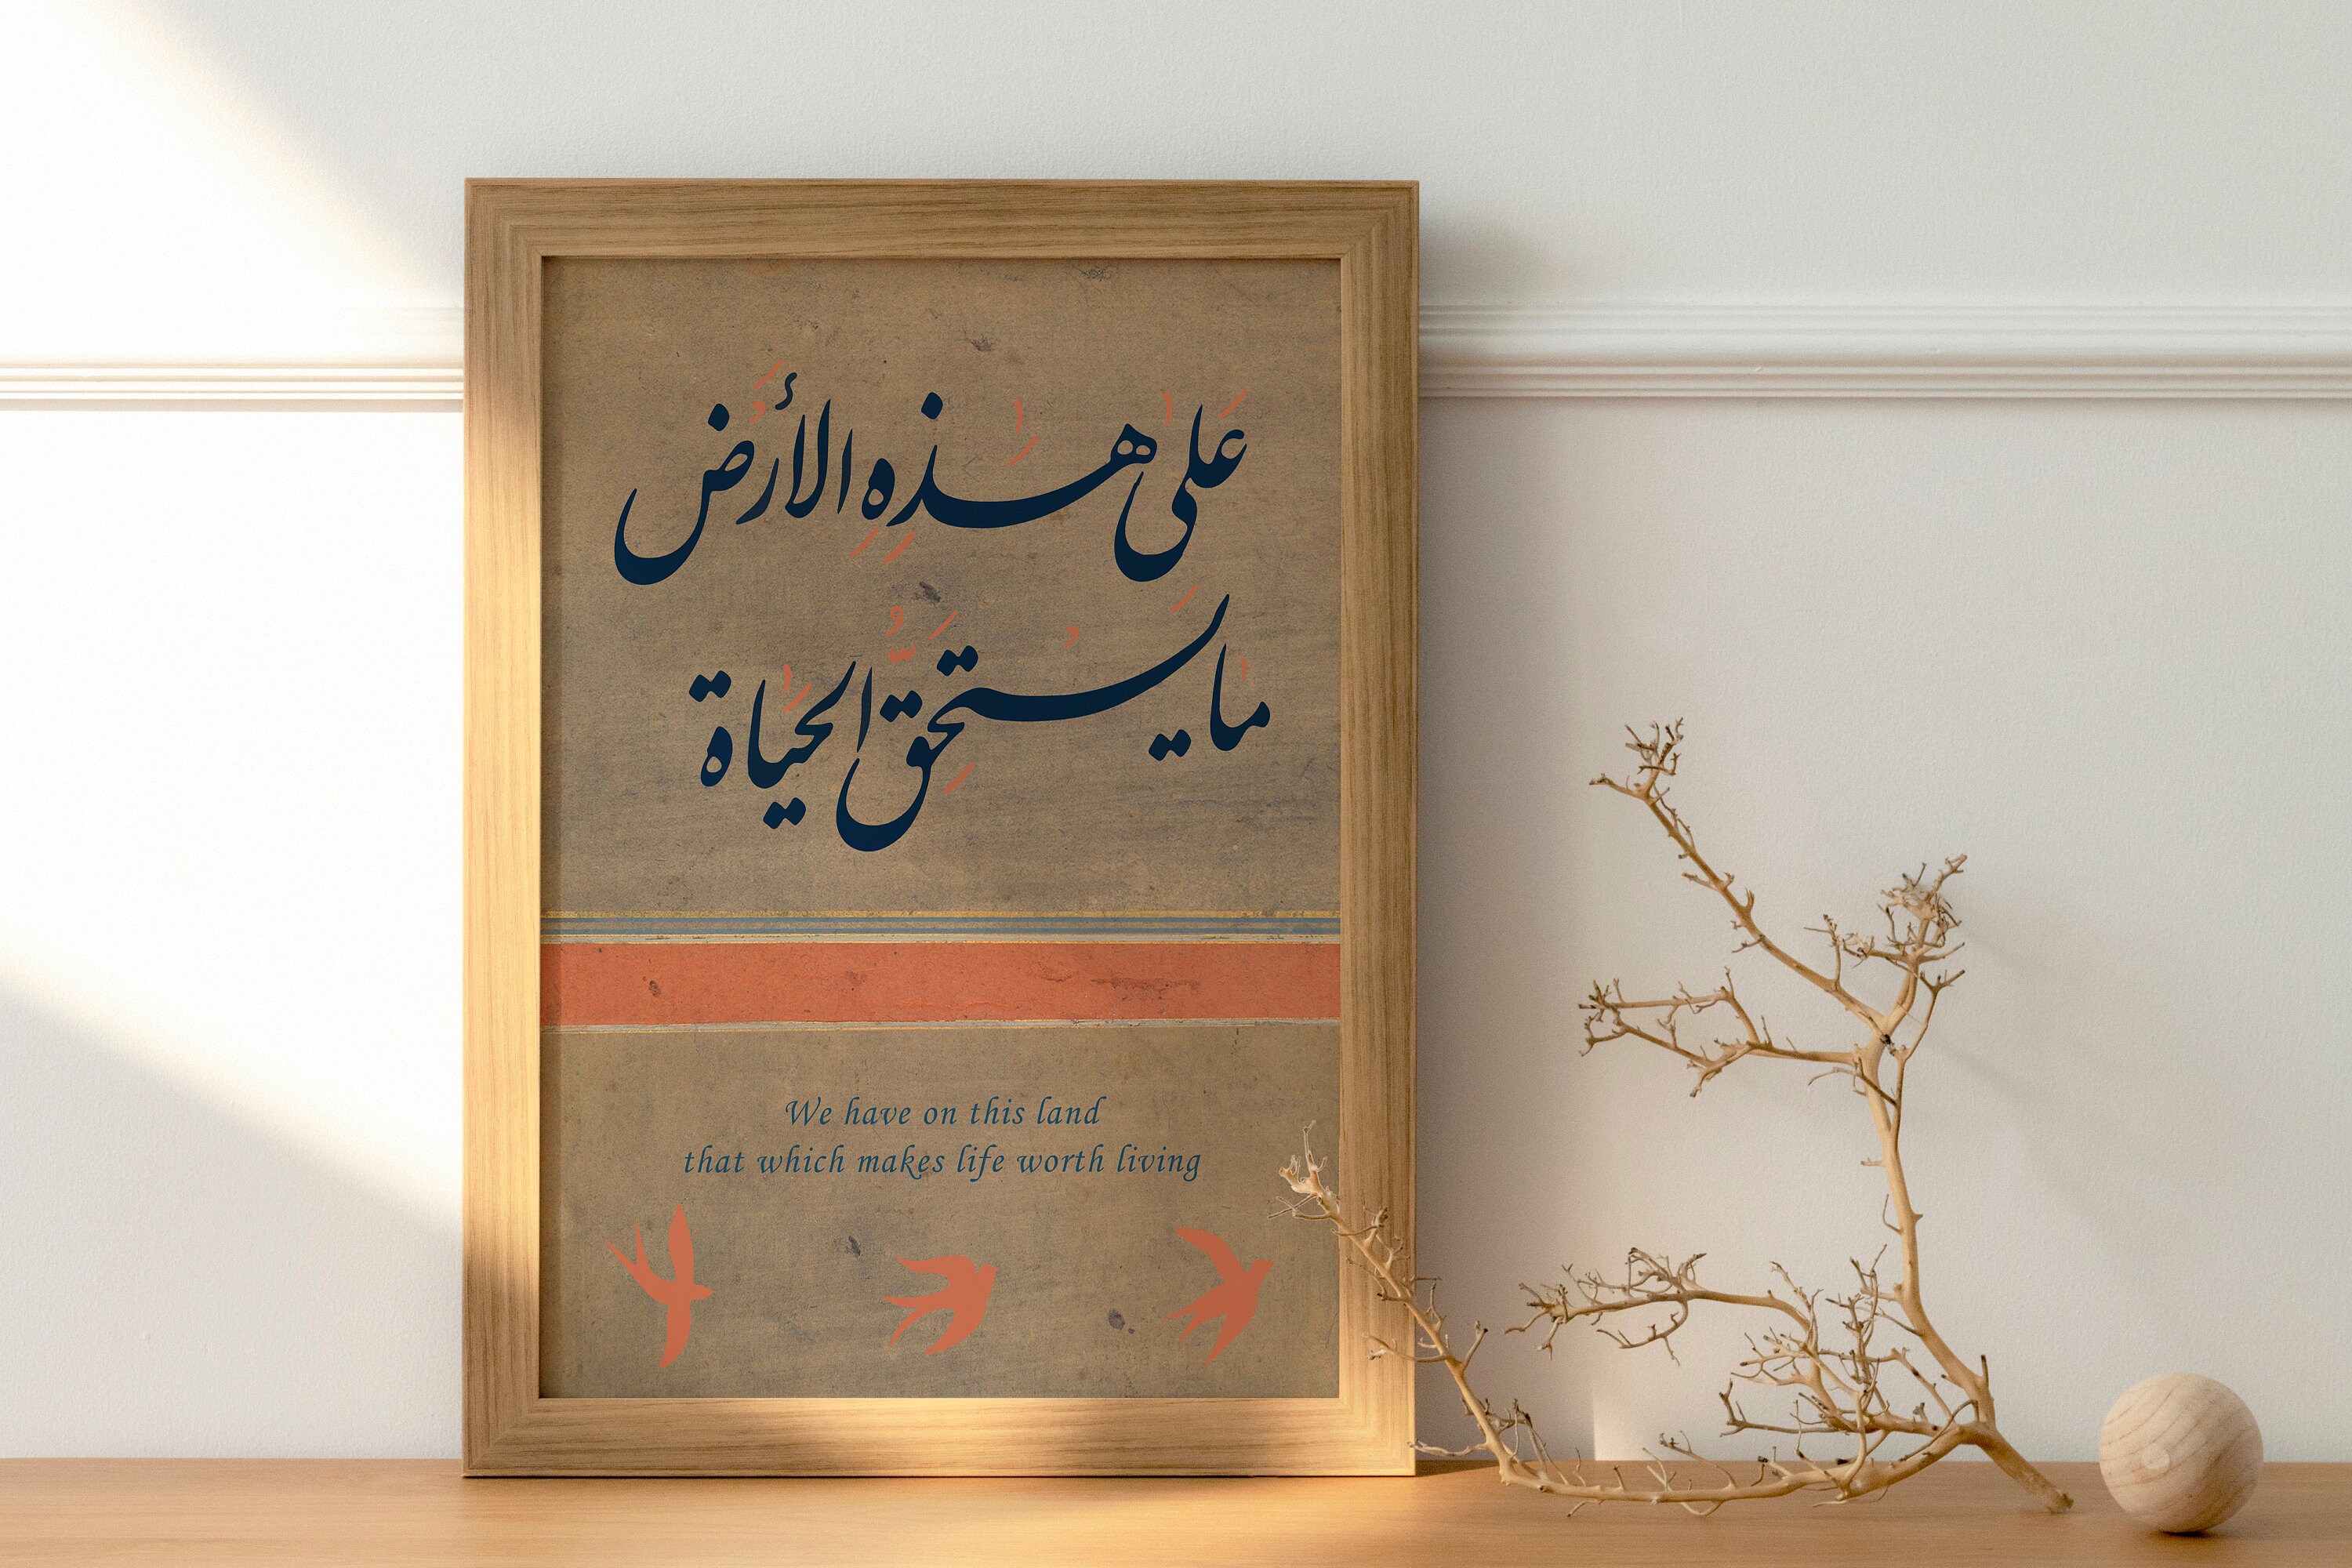 عَلَى هَذِهِ الأَرْض
مَا يَسْتَحِقُّ الحَيَاة
We have on this land
that which makes life worth living